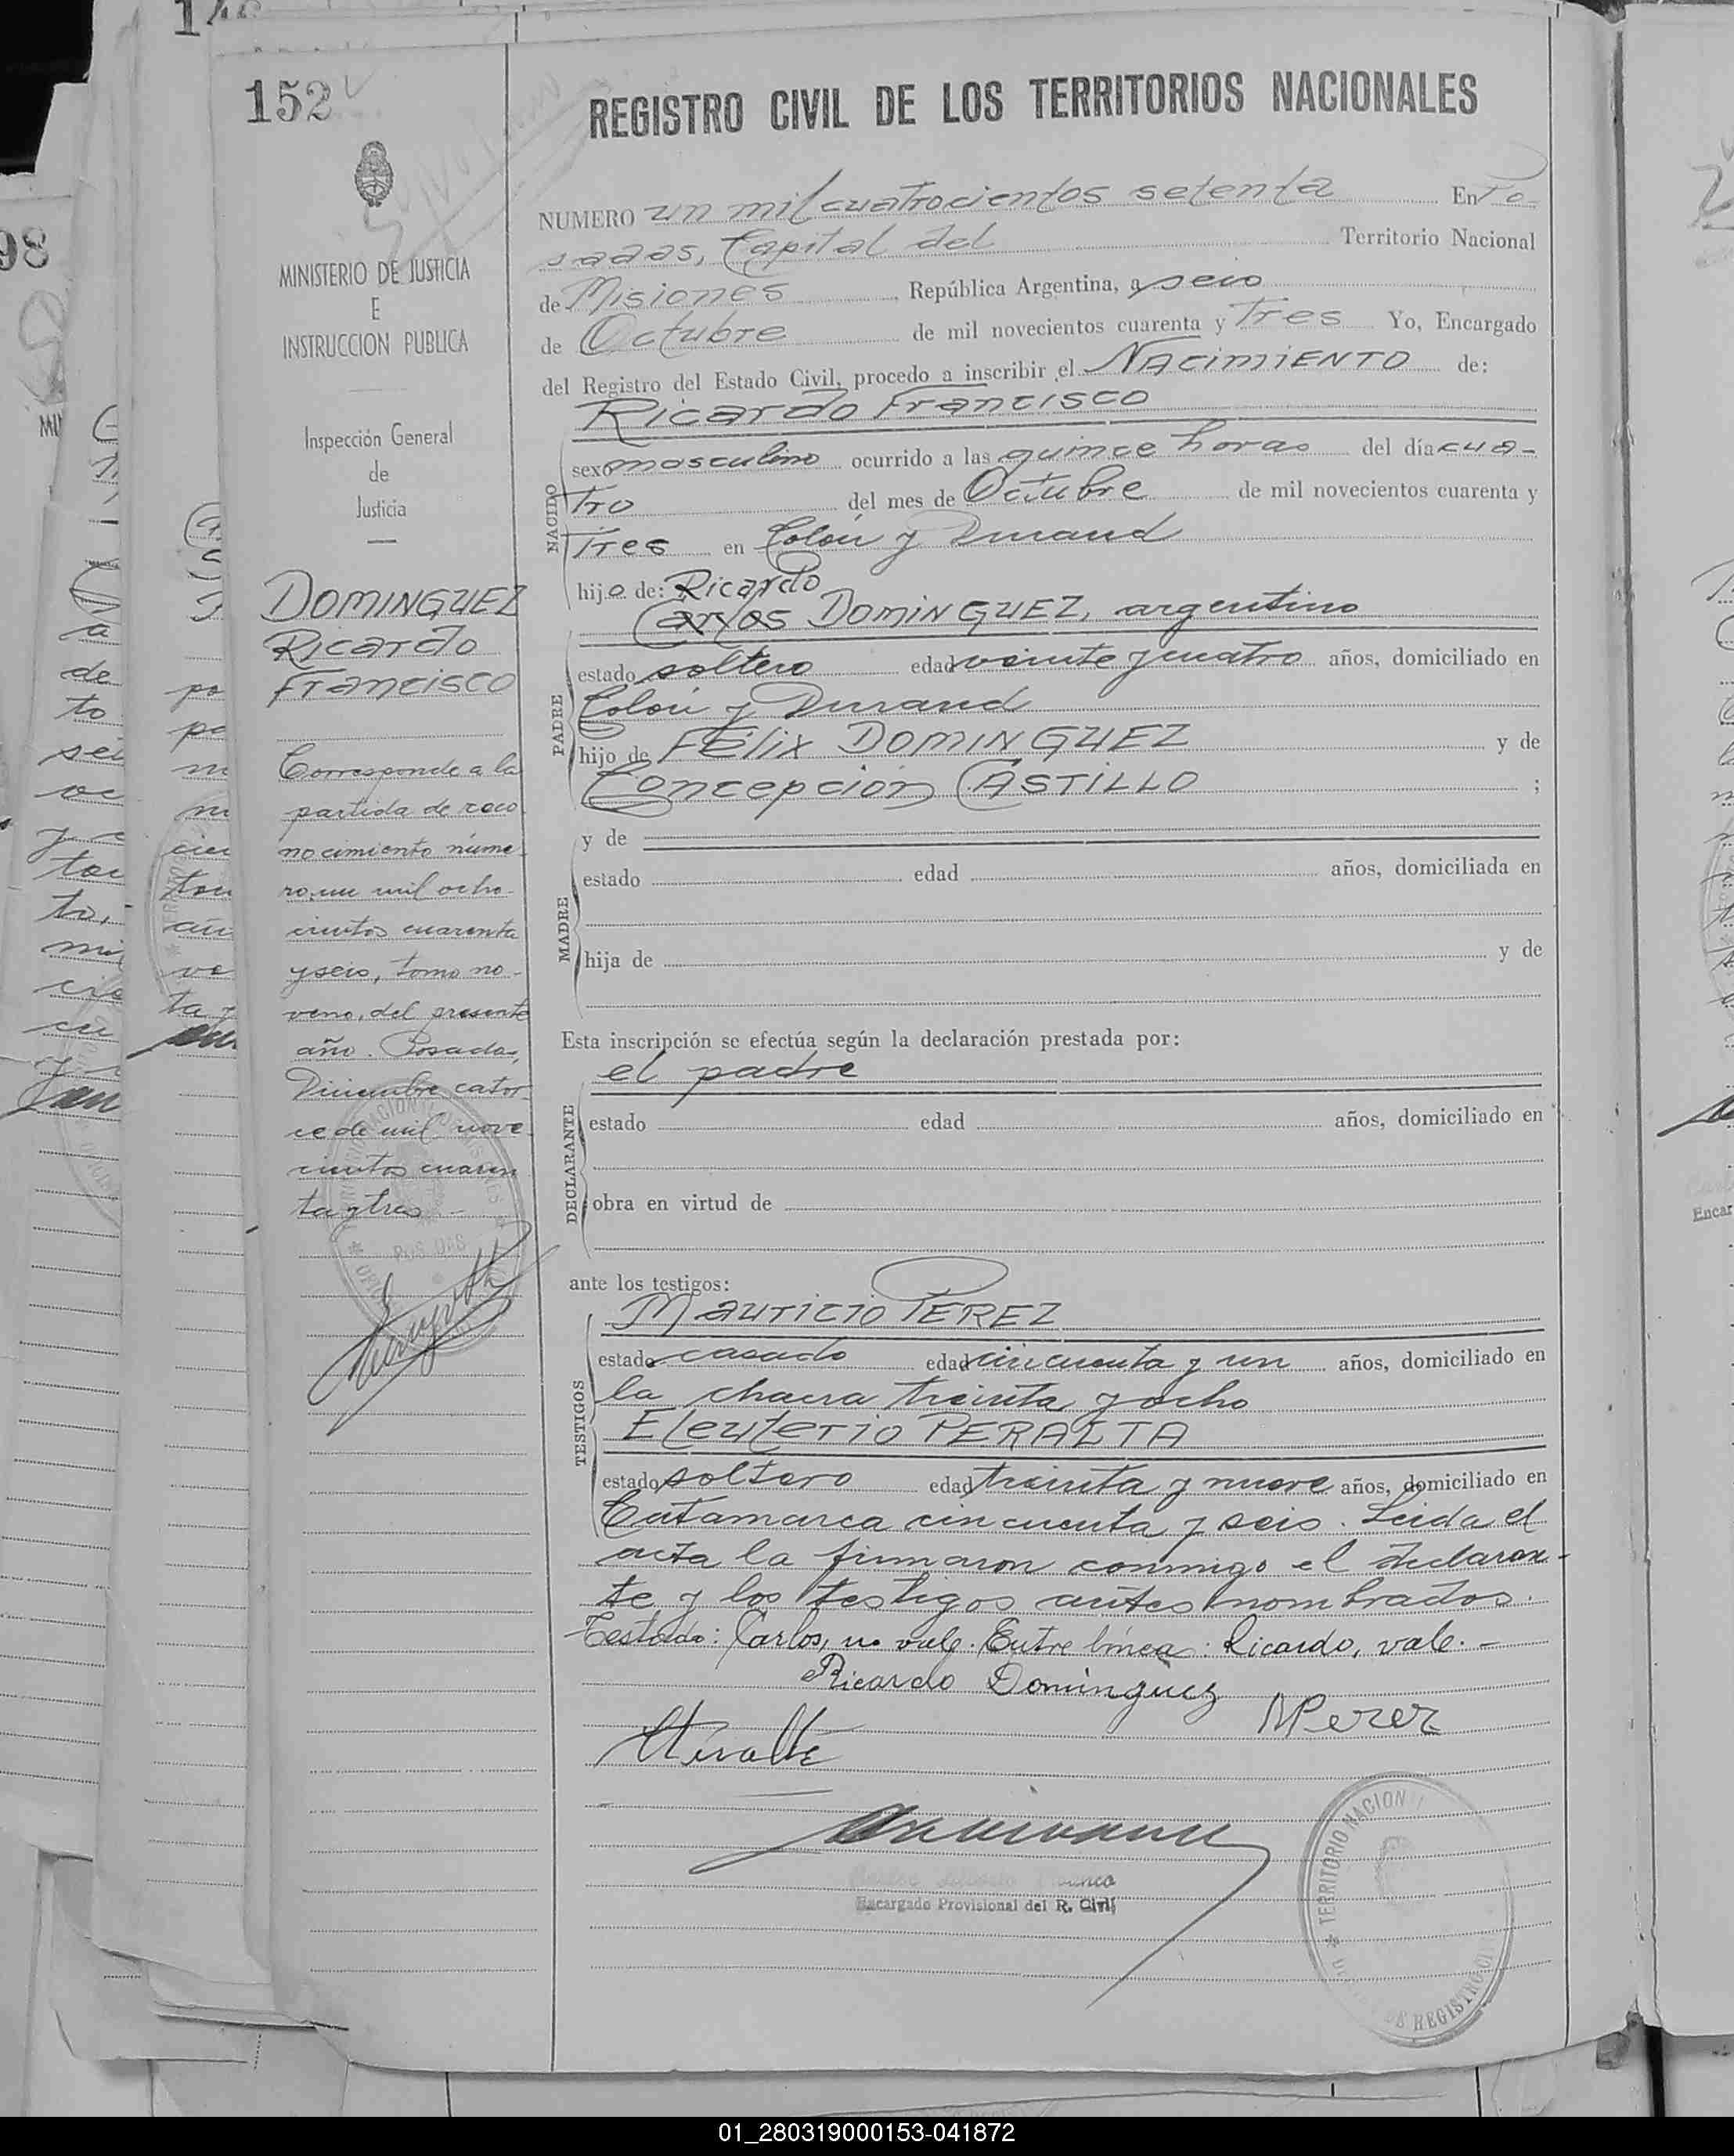 152
MINISTERIO DE JUSTICIA
E
INSTRUCCION PUBLICA
Inspección General
de
Justicia
DOMINGUEZ
Ricardo
Francisco
Corresponde a la
partida de reco
nocimiento núme-
ro un mil ocho-
cientos cuarenta
y seis, tomo no-
veno, del presente
año. Posadas,
Diciembre cator-
ce de mil nove-
cientos cuaren
ta y tres.-
REGISTRO CIVIL DE LOS TERRITORIOS NACIONALES
NUMERO un mil cuatrocientos setenta En Po-
sadas, Capital del Territorio Nacional
de Misiones República Argentina, a seis
de Octubre de mil novecientos cuarenta y Tres Yo, Encargado
del Registro del Estado Civil, procedo a inscribir el NACIMIENTO de:
Ricardo Francisco
NACIDO
sexo masculino ocurrido a las quince horas del día cua-
tro del mes de Octubre de mil novecientos cuarenta y
Tres en Colón y Durand
hijo de: Ricardo
Carlos DOMINGUEZ, argentino
PADRE
estado soltero edad veinte y cuatro años, domiciliado en
Colón y Durand
hijo de Félix DOMINGUEZ y de
Concepción CASTILLO ;
y de
MADRE
estado edad años, domiciliada en
hija de y de
Esta inscripción se efectúa según la declaración prestada por:
el padre
DECLARANTE
estado edad años, domiciliado en
obra en virtud de
ante los testigos:
Mauricio PEREZ
TESTIGOS
estado casado edad cincuenta y un años, domiciliado en
la chacra treinta y ocho
Eleuterio PERALTA
estado soltero edad treinta y nueve años, domiciliado en
Catamarca cincuenta y seis. Leida el
acta la firmaron conmigo el declaran-
te y los testigos antes nombrados.
Testado: Carlos, no vale. Entre línea: Ricardo, vale.-
Ricardo Dominguez
MPerez
Encargado Provisional del R. Civil
TERRITORIO NACION
DE REGISTRO
01_280319000153-041872